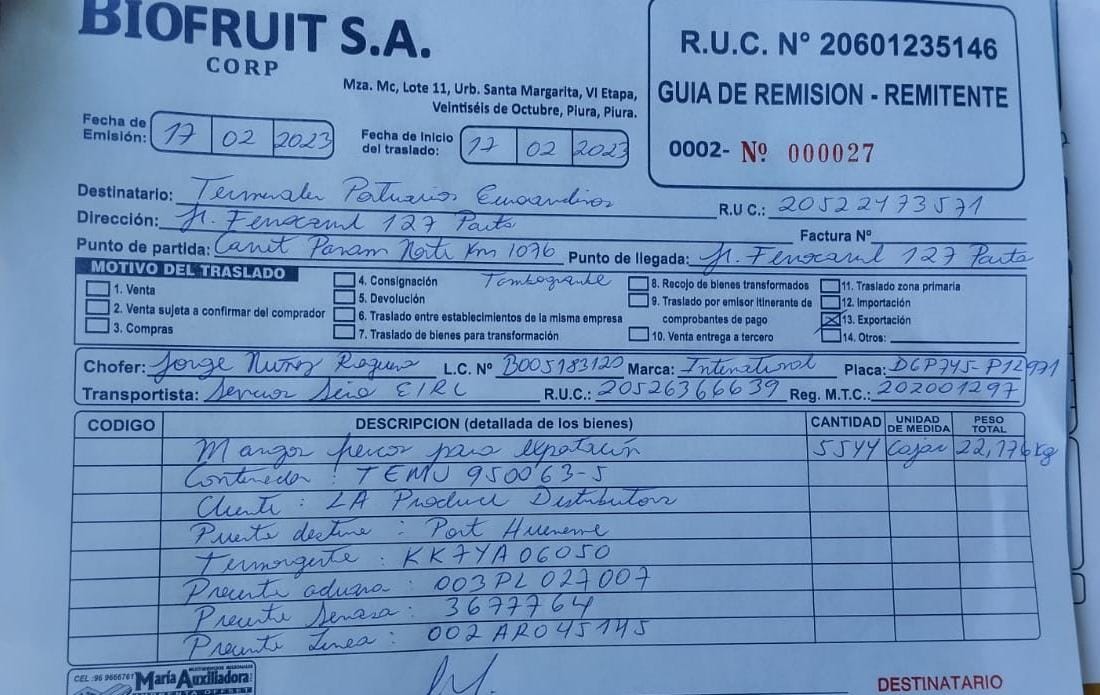 BIOFRUIT S.A.
CORP
Mza. Mc, Lote 11, Urb. Santa Margarita, VI Etapa,
Veintiséis de Octubre, Piura, Piura.
R.U.C. Nº 20601235146
GUIA DE REMISION - REMITENTE
0002- Nº 000027
Fecha de Emisión: 17 02 2023
Fecha de Inicio del traslado: 17 02 2023
Destinatario: Terminales Portuarios Euroandinos
R.U.C.: 20522473571
Dirección: Jr. Ferrocarril 127 Paita
Factura Nº
Punto de partida: Carret Panam Norte Km 1076 Tambogrande
Punto de llegada: Jr. Ferrocarril 127 Paita
MOTIVO DEL TRASLADO
1. Venta
2. Venta sujeta a confirmar del comprador
3. Compras
4. Consignación
5. Devolución
6. Traslado entre establecimientos de la misma empresa
7. Traslado de bienes para transformación
8. Recojo de bienes transformados
9. Traslado por emisor itinerante de
comprobantes de pago
10. Venta entrega a tercero
11. Traslado zona primaria
12. Importación
13. Exportación
14. Otros:
Chofer: Jorge Nuñez L.C. Nº B005183120 Marca: International Placa: D6P745- P1L971
Transportista: EIRL R.U.C.: 20526366639 Reg. M.T.C.: 202001297
CODIGO DESCRIPCION (detallada de los bienes) CANTIDAD UNIDAD DE MEDIDA PESO TOTAL
Mangos frescos para exportación 5544 Cajas 22,176 kg
Contenedor : TEMU 950063-5
Cliente : LA Produce Distributors
Puerto destino : Port Hueneme
Termorgistro : KK7YA06050
Precinto aduana : 003PL027007
Precinto Senasa : 3677764
Precinto Linea : 002AR045145
CEL.:96 9666761
María Auxiliadora
IMPRENTA OFFSET
DESTINATARIO